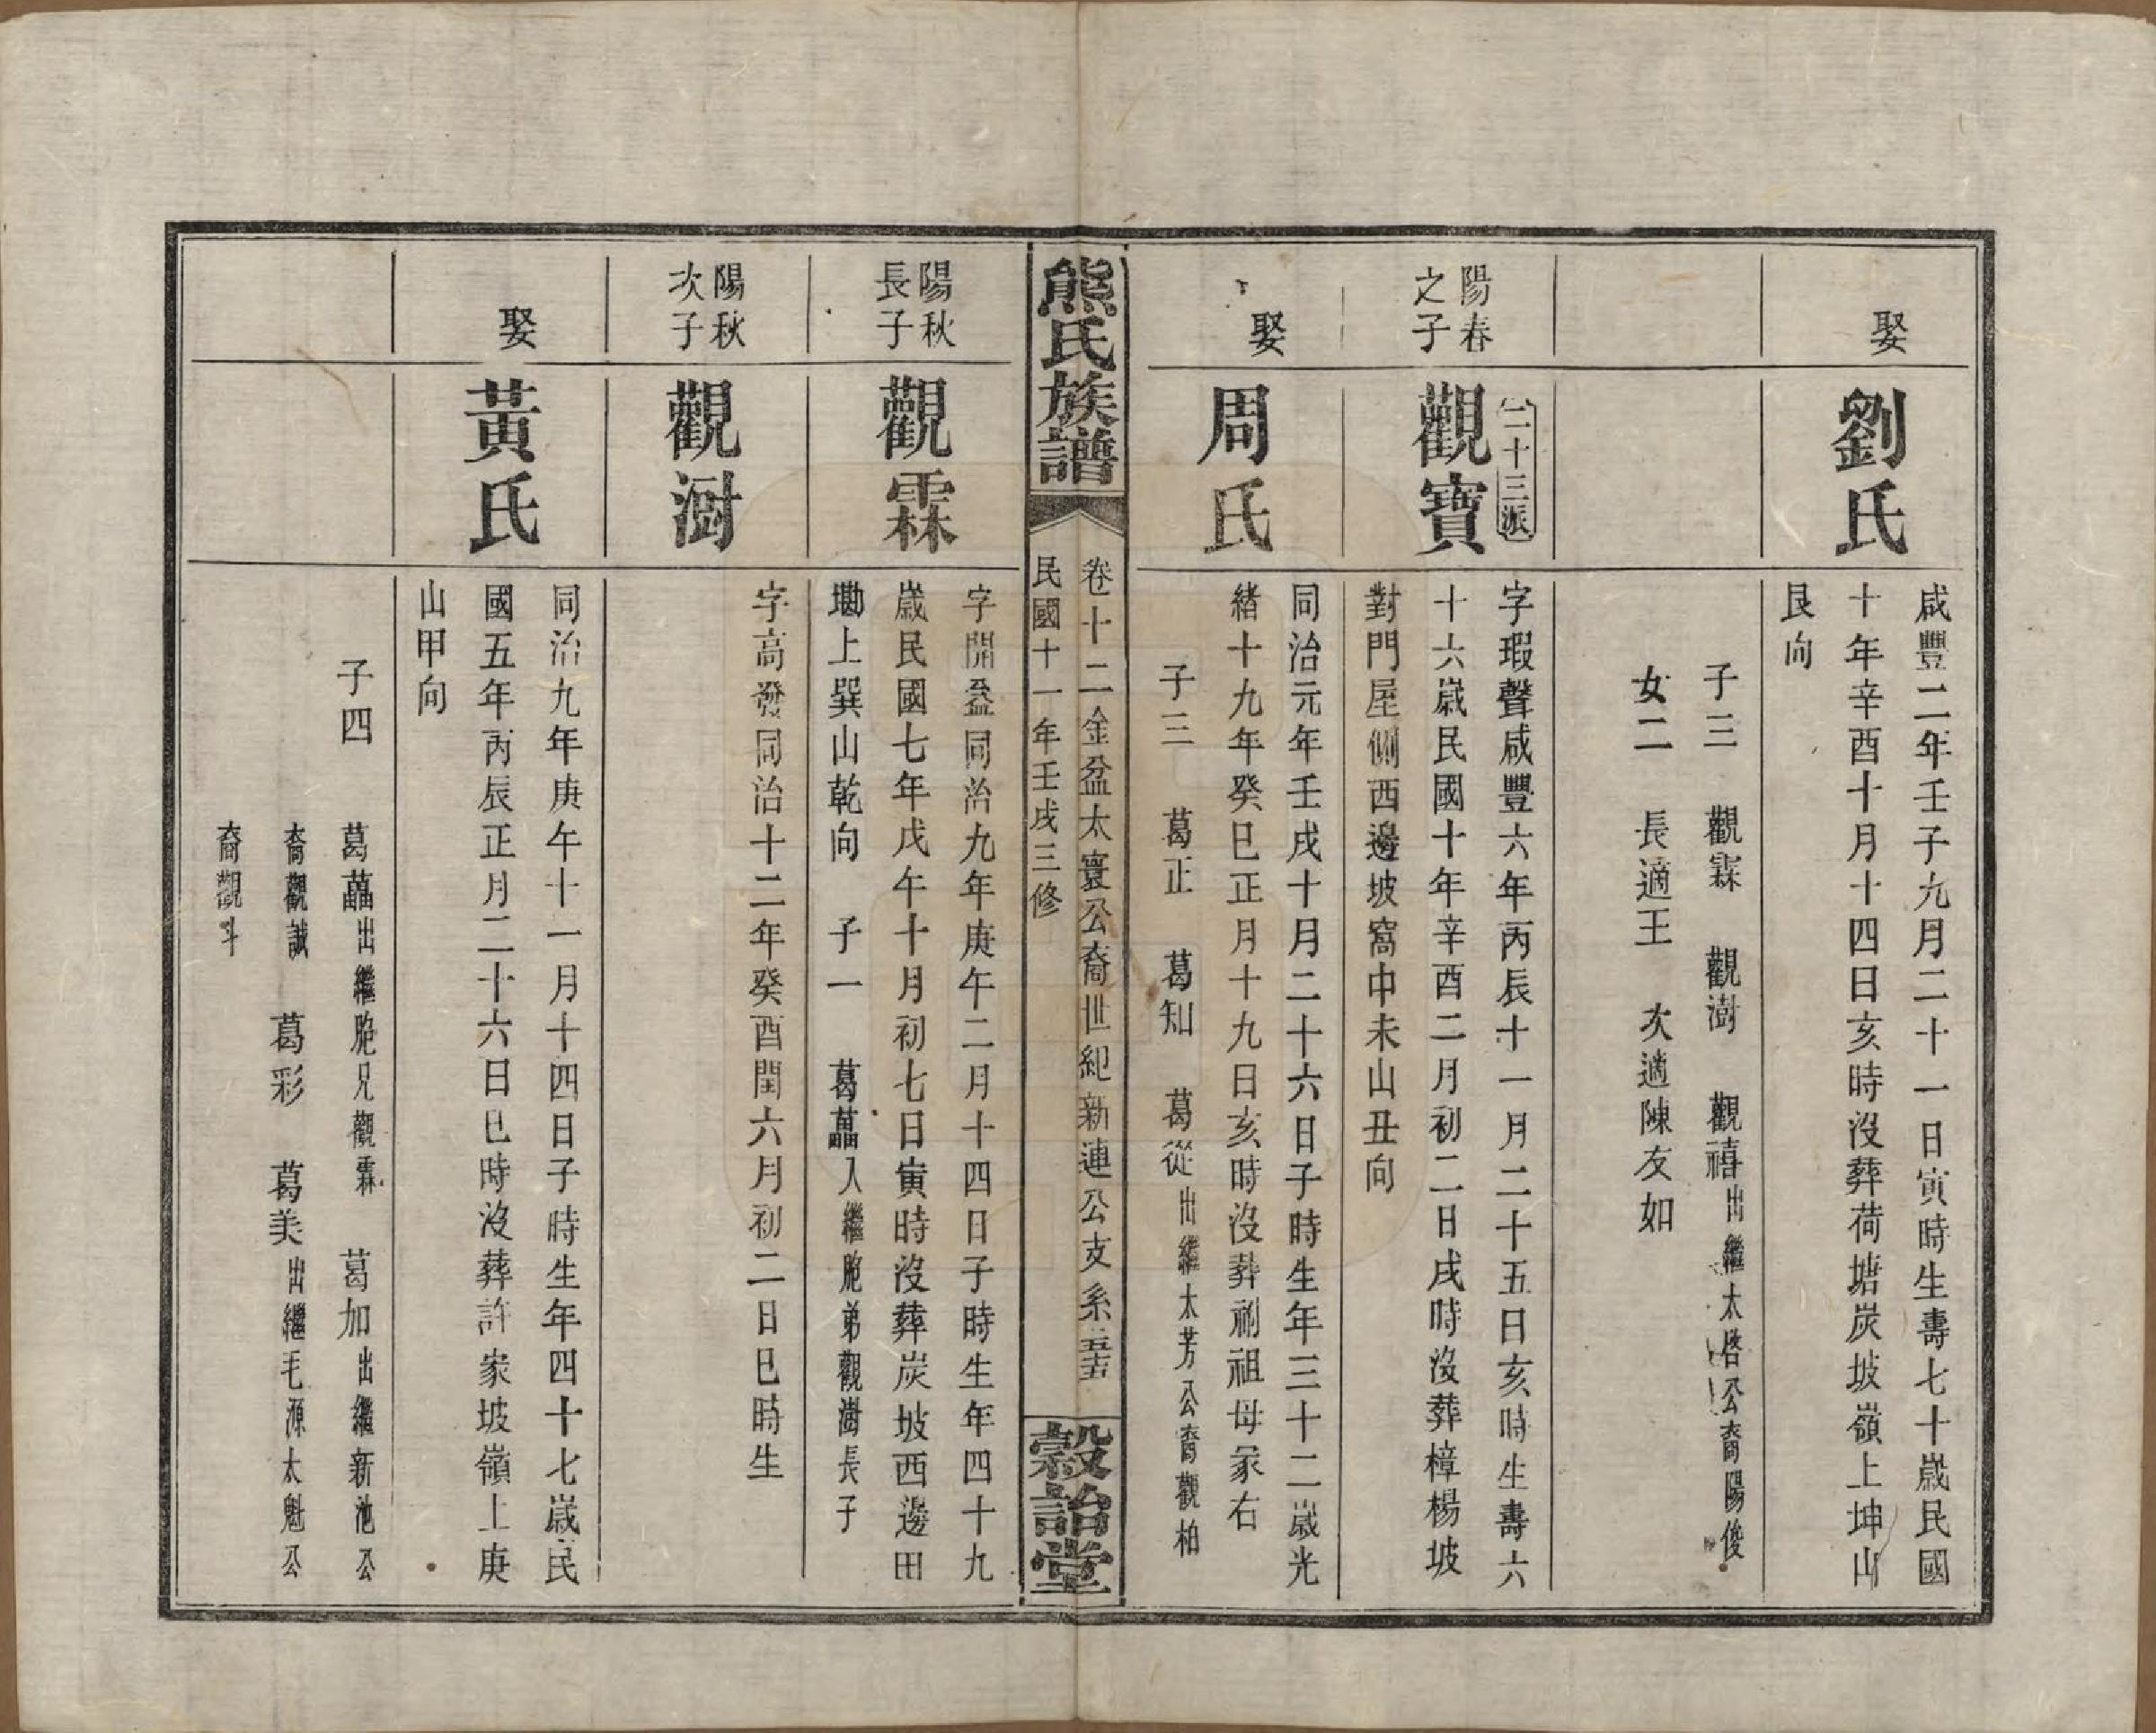 娶
劉氏
咸豐二年壬子九月二十一日寅時生壽七十歲民國
十年辛酉十月十四日亥時沒葬荷塘炭坡嶺上坤山
艮向
子三　觀霖　觀澍　觀禧出繼太啓公裔陽俊
女二　長適王　次適陳友如
陽春
之子
二十三派
觀寶
字瑕聲咸豐六年丙辰十一月二十五日亥時生壽六
十六歲民國十年辛酉二月初二日戌時沒葬樟楊坡
對門屋側西邊坡窩中未山丑向
娶
周氏
同治元年壬戌十月二十六日子時生年三十二歲光
緒十九年癸巳正月十九日亥時沒葬祔祖母冢右
子三　葛正　葛知　葛從出繼太芳公裔觀柏
熊氏族譜
卷十二金盆太寰公裔世紀新連公支系
民國十一年壬戌三修
穀詒堂
陽秋
長子
觀霖
字開益同治九年庚午二月十四日子時生年四十九
歲民國七年戊午十月初七日寅時沒葬炭坡西邊田
墈上巽山乾向　子一　葛藟入繼胞弟觀澍長子
陽秋
次子
觀澍
字高發同治十二年癸酉閏六月初二日巳時生
娶
黃氏
同治九年庚午十一月十四日子時生年四十七歲民
國五年丙辰正月二十六日巳時沒葬許家坡嶺上庚
山甲向
子四　葛藟出繼胞兄觀霖　葛加出繼新池公
裔觀誠　葛彩　葛美出繼毛源太魁公
裔觀斗